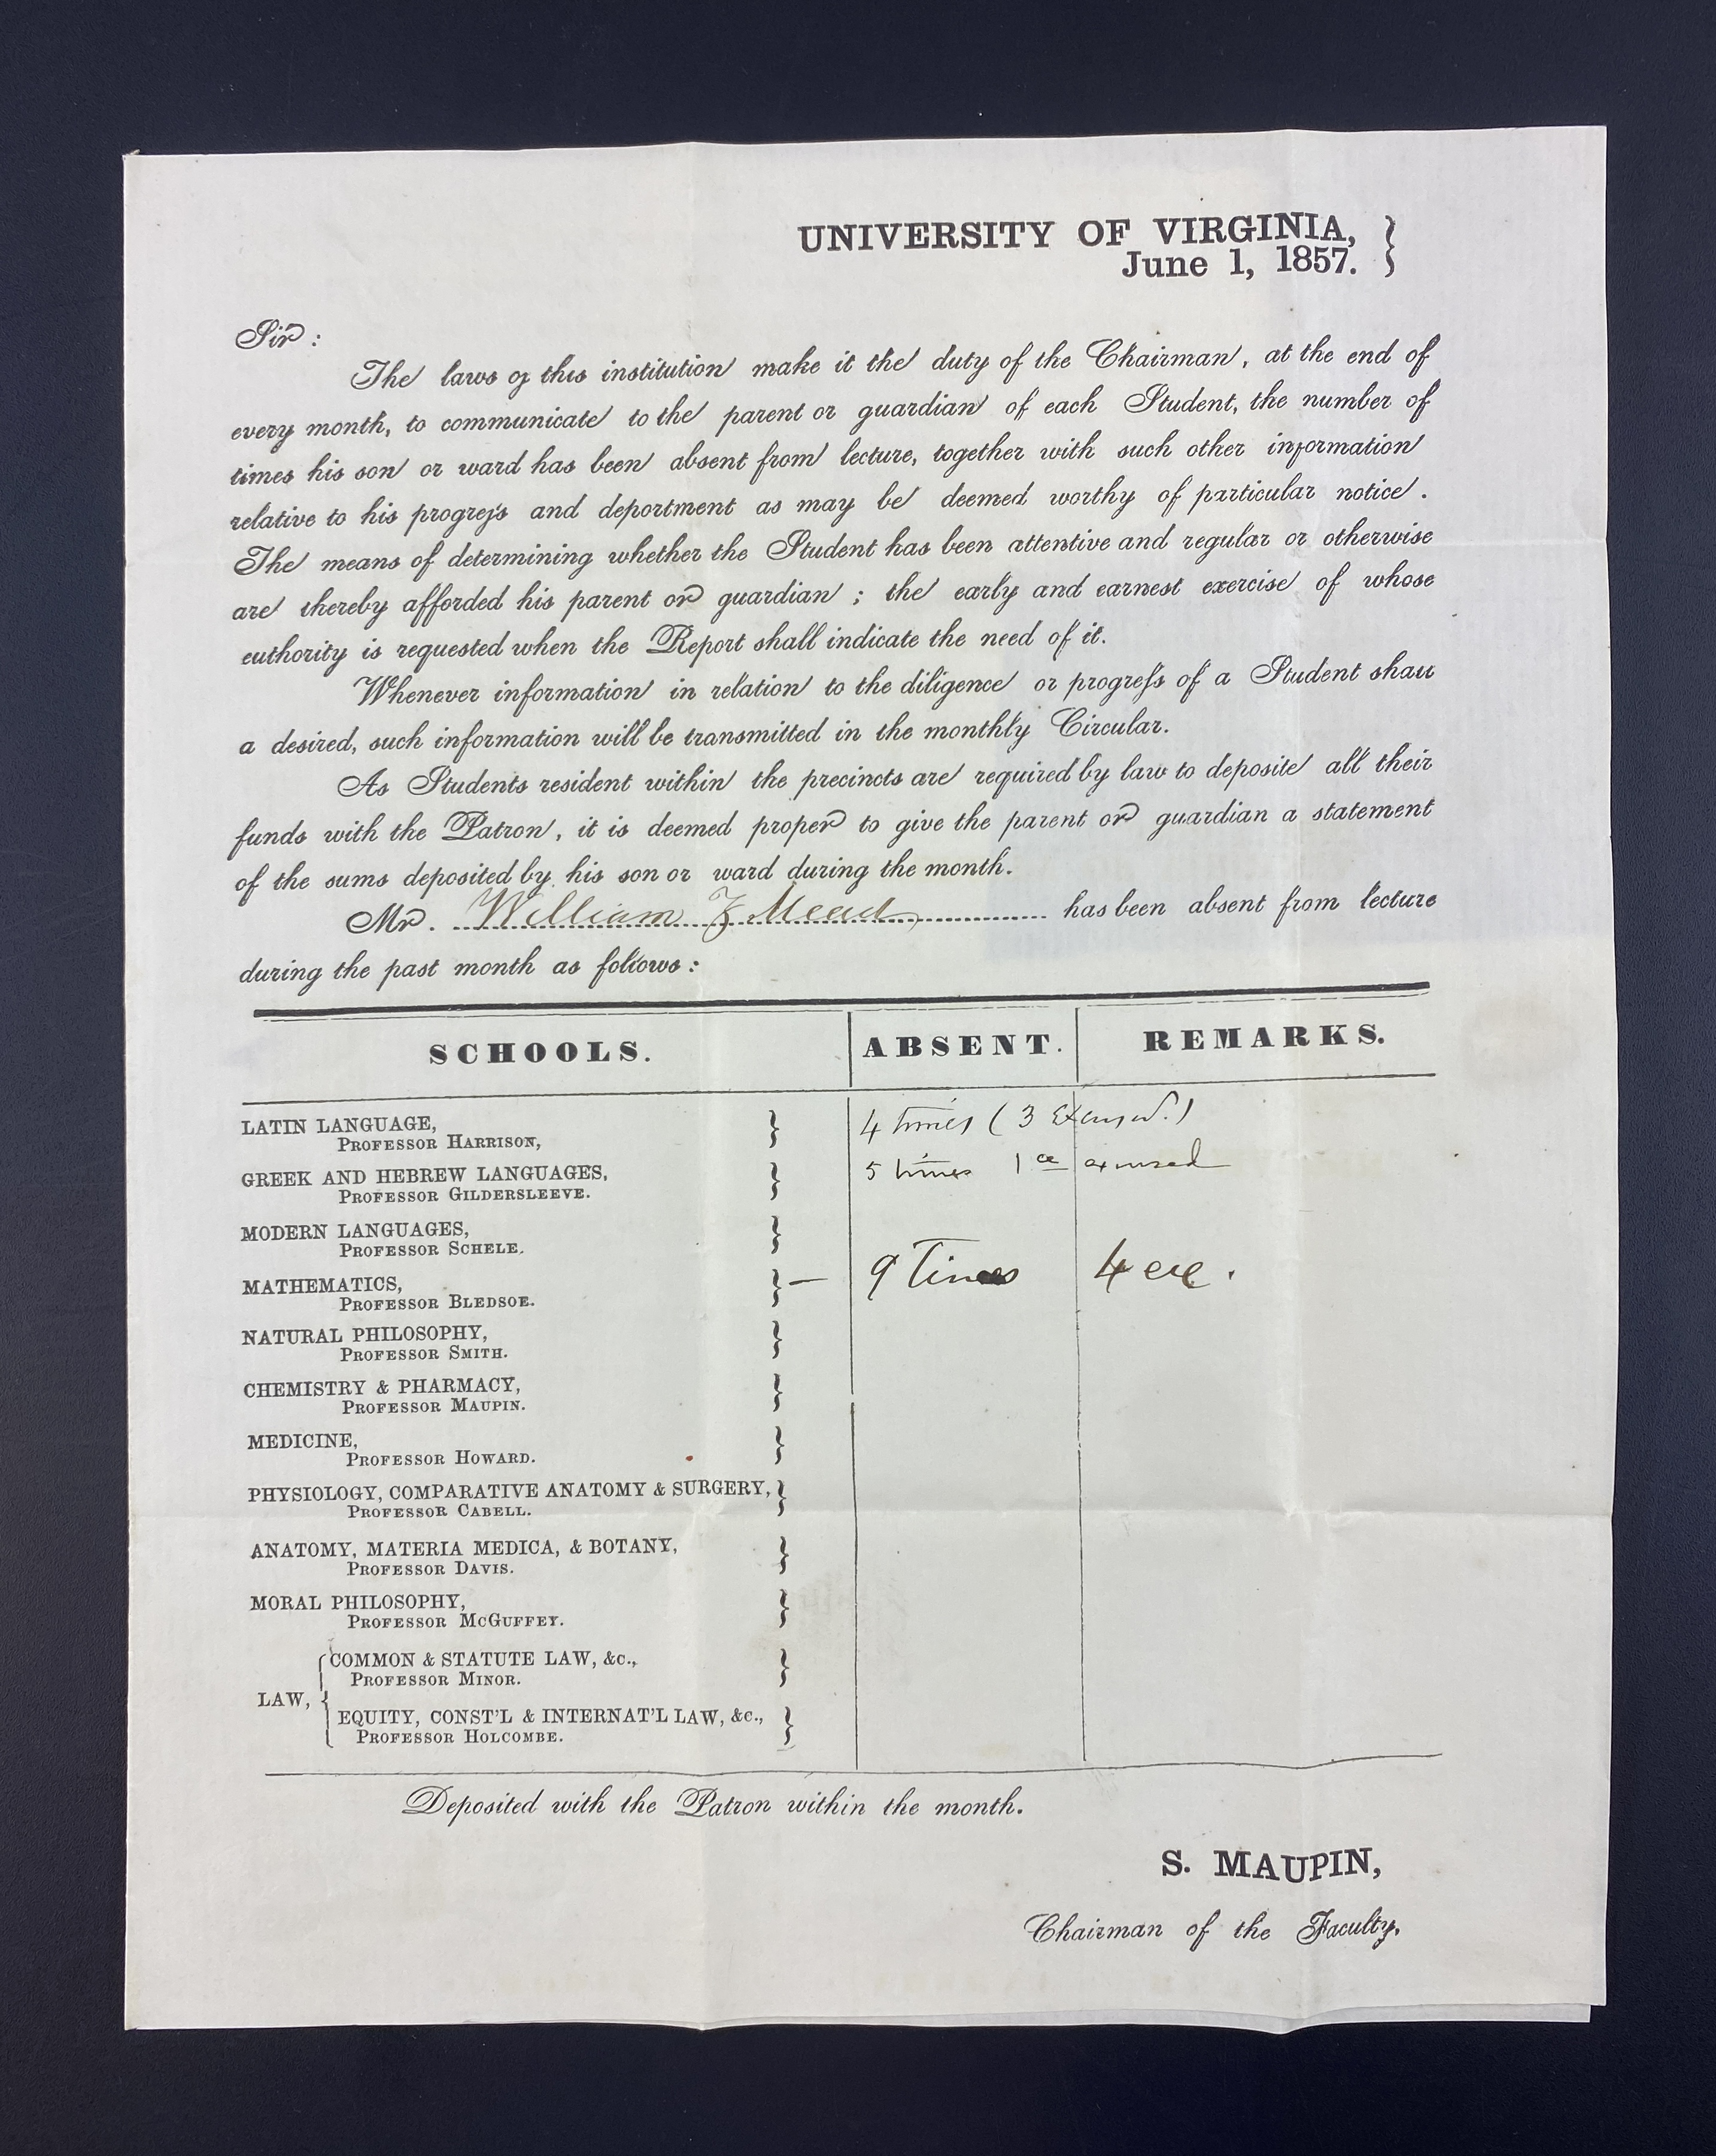 UNIVERSITY OF VIRGINIA, }
June 1, 1857.
Sir :
The laws of this institution make it the duty of the Chairman, at the end of
every month, to communicate to the parent or guardian of each Student, the number of
times his son or ward has been absent from lecture, together with such other information
relative to his progress and deportment as may be deemed worthy of particular notice.
The means of determining whether the Student has been attentive and regular or otherwise
are thereby afforded his parent or guardian ; the early and earnest exercise of whose
euthority is requested when the Report shall indicate the need of it.
Whenever information in relation to the diligence or progress of a Student shall
a desired, such information will be transmitted in the monthly Circular.
As Students resident within the precincts are required by law to deposite all their
funds with the Patron, it is deemed proper to give the parent or guardian a statement
of the sums deposited by his son or ward during the month.
Mr. William Z Mead has been absent from lecture
during the past month as follows :
SCHOOLS. ABSENT. REMARKS.
LATIN LANGUAGE, } 4 times (3 Excused.)
PROFESSOR HARRISON,
GREEK AND HEBREW LANGUAGES, } 5 times 1ce excused
PROFESSOR GILDERSLEEVE.
MODERN LANGUAGES, }
PROFESSOR SCHELE.
MATHEMATICS, } — 9 Times 4 exc.
PROFESSOR BLEDSOE.
NATURAL PHILOSOPHY, }
PROFESSOR SMITH.
CHEMISTRY & PHARMACY, }
PROFESSOR MAUPIN.
MEDICINE, }
PROFESSOR HOWARD.
PHYSIOLOGY, COMPARATIVE ANATOMY & SURGERY, }
PROFESSOR CABELL.
ANATOMY, MATERIA MEDICA, & BOTANY, }
PROFESSOR DAVIS.
MORAL PHILOSOPHY, }
PROFESSOR MCGUFFEY.
COMMON & STATUTE LAW, &c., }
PROFESSOR MINOR.
LAW, {
EQUITY, CONST'L & INTERNAT'L LAW, &c., }
PROFESSOR HOLCOMBE.
Deposited with the Patron within the month.
S. MAUPIN,
Chairman of the Faculty.